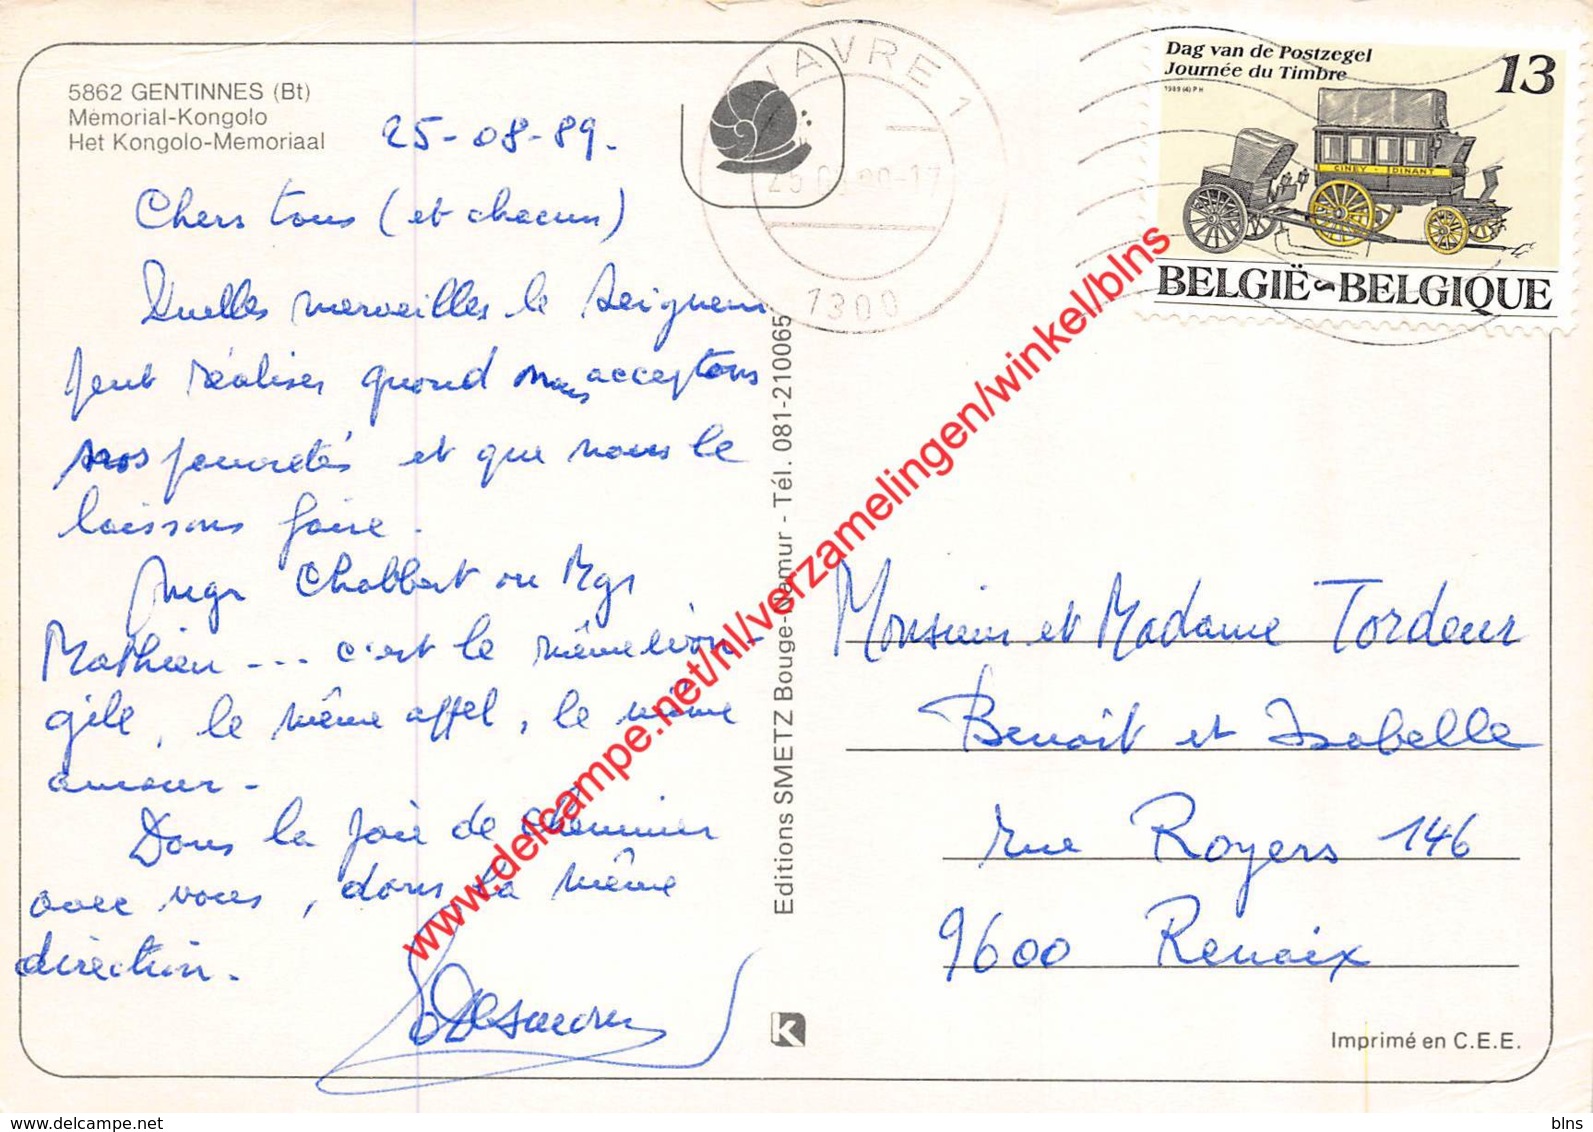 5862 GENTINNES (Bt)
Mémorial-Kongolo
Het Kongolo-Memoriaal
25-08-89.
Chers tous (et chacun)
Quelles merveilles le Seigneur
peut réaliser quand nous acceptons
nos pauvretés et que nous le
laissons faire.
Mgr Chabbert ou Mgr
Mathieu --- c'est le même évan-
gile, le même appel, le même
amour.
Dans la joie de cheminer
avec vous, dans la même
direction.
WAVRE 1
1300
Dag van de Postzegel
Journée du Timbre
13
1989 (4) PH
CINEY - DINANT
BELGIË BELGIQUE
Editions SMETZ Bouge-Namur - Tél. 081-210065
Monsieur et Madame Tordeur
Benoît et Isabelle
rue Royers 146
9600 Renaix
K
Imprimé en C.E.E.
www.delcampe.net/nl/verzamelingen/winkel/blns
www.delcampe.net
blns